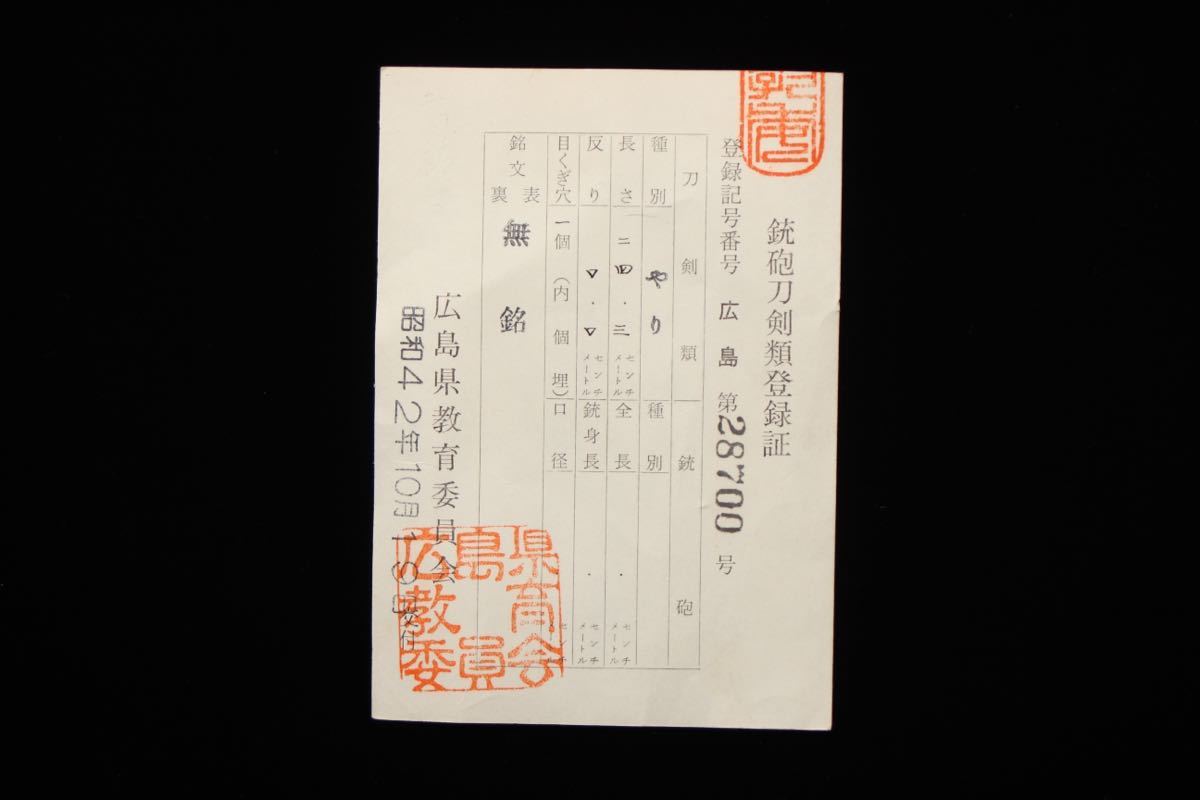 銃砲刀剣類登録証
登録記号番号 広島 第28700号
刀剣類 銃砲
種別 やり 種別
長さ 二四.三 センチメートル 全長 . センチメートル
反り . センチメートル 銃身長 . センチメートル
目くぎ穴 一個 (内 個埋) 口径 センチメートル
銘文 表 裏 無銘
広島県教育委員会
昭和42年10月19日交付
広島県教育委員会